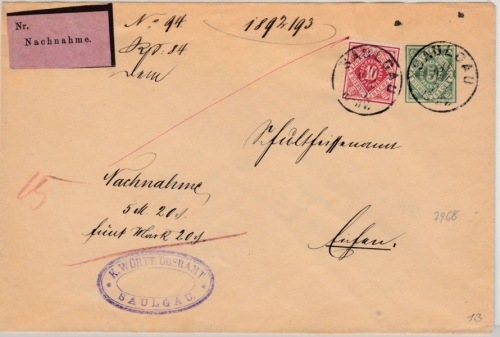 Nr.
Nachnahme.
No 94 1892/93
Dem
10
SAULGAU
5
SAULGAU
Schultheissenamt
15
Nachnahme
5 M. 20 d.
fünf Mark 20 d.
2968
K. WÜRTT. OBERAMT
SAULGAU.
13